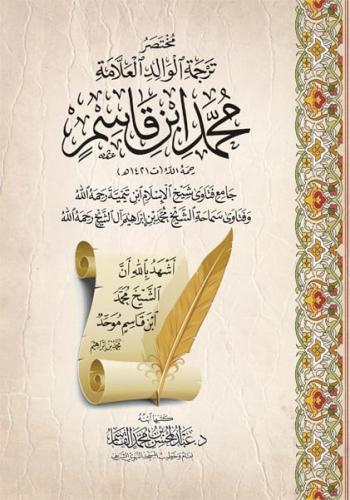 مُخْتَصَرُ
تَرْجَمَةِ الْوَالِدِ الْعَلَّامَةِ
مُحَمَّدِ ابْنِ قَاسِمٍ
رحمه الله (ت ١٤٢١هـ)
جَامِعِ فَتَاوَى شَيْخِ الْإِسْلَامِ ابْنِ تَيْمِيَّةَ رَحِمَهُ اللهُ
وَفَتَاوَى سَمَاحَةِ الشَّيْخِ مُحَمَّدِ بْنِ إِبْرَاهِيمَ آلِ الشَّيْخِ رَحِمَهُ اللهُ
أَشْهَدُ بِاللهِ أَنَّ
الشَّيْخَ مُحَمَّدَ
ابْنَ قَاسِمٍ مُوَحِّدٌ
مُحَمَّد بْن إِبْرَاهِيم
كتبها ابنه
د. عَبْدُ الْمُحْسِنِ بْنُ مُحَمَّدٍ الْقَاسِمُ
إمام وخطيب المسجد النبوي الشريف